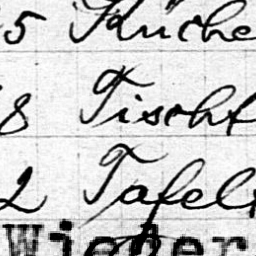 5 Küche
8 Tischt
2 Tafel
Wieder